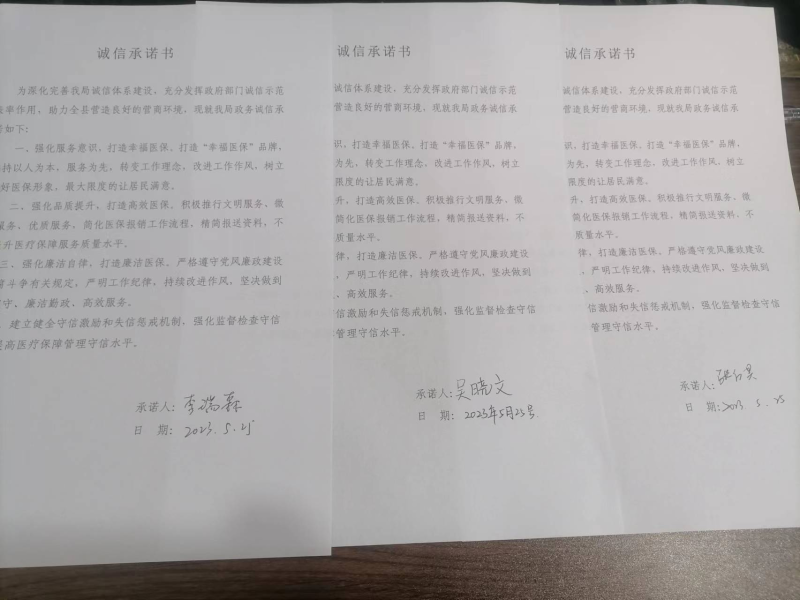 诚信承诺书
为深化完善我局诚信体系建设，充分发挥政府部门诚信示范
表率作用，助力全县营造良好的营商环境，现就我局政务诚信承
如下：
一、强化服务意识，打造幸福医保、打造“幸福医保”品牌，
持以人为本，服务为先，转变工作理念、改进工作作风，树立
好医保形象，最大限度的让居民满意。
二、强化品质提升，打造高效医保、积极推行文明服务、微
服务，优质服务，简化医保报销工作流程，精简报送资料，不
升医疗保障服务质量水平。
三、强化廉洁自律，打造廉洁医保、严格遵守党风廉政建设
斗争有关规定，严明工作纪律，持续改进作风，坚决做到
守、廉洁勤政、高效服务。
建立健全守信激励和失信惩戒机制，强化监督检查守信
高医疗保障管理守信水平。
承诺人：李瑞霖
日 期：2023.5.25
诚信承诺书
诚信体系建设，充分发挥政府部门诚信示范
营造良好的营商环境，现就我局政务诚信承
识，打造幸福医保、打造“幸福医保”品牌，
为先，转变工作理念、改进工作作风，树立
限度的让居民满意。
升，打造高效医保、积极推行文明服务、微
简化医保报销工作流程，精简报送资料，不
质量水平。
律，打造廉洁医保、严格遵守党风廉政建设
，严明工作纪律，持续改进作风，坚决做到
、高效服务。
信激励和失信惩戒机制，强化监督检查守信
管理守信水平。
承诺人：吴晓文
日 期：2023年5月25号
诚信承诺书
诚信体系建设，充分发挥政府部门诚信示范
营造良好的营商环境，现就我局政务诚信承
识，打造幸福医保、打造“幸福医保”品牌，
为先，转变工作理念、改进工作作风，树立
限度的让居民满意。
升，打造高效医保、积极推行文明服务、微
简化医保报销工作流程，精简报送资料，不
质量水平。
律，打造廉洁医保、严格遵守党风廉政建设
，严明工作纪律，持续改进作风，坚决做到
、高效服务。
信激励和失信惩戒机制，强化监督检查守信
管理守信水平。
承诺人：
日 期：2023.5.25